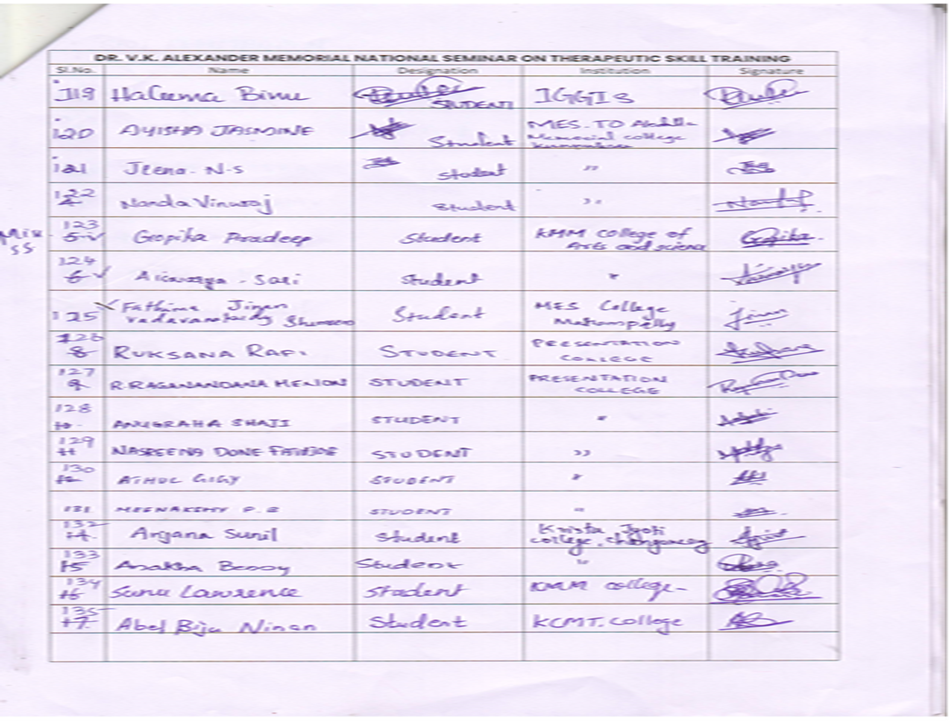 DR. V.K. ALEXANDER MEMORIAL NATIONAL SEMINAR ON THERAPEUTIC SKILL TRAINING
Sl.No. Name Designation Institution Signature
119 Haleema Binu STUDENT IGGIS
120 AYISHA JASMINE Student MES. TO
Memorial college
121 Jeena. N.S Student "
122 Nanda Vinuraj Student "
123
5 ✓ Gopika Pradeep Student KMM College of
Arts and science Gopika.
124
6 ✓ Sari Student "
125 Fathima Jinan
Student MES College
Jinan
126
8 RUKSANA RAFI STUDENT PRESENTATION
COLLEGE
127
9 R.RAGANANDANA MENON STUDENT PRESENTATION
COLLEGE
128
10. ANUGRAHA SHAJI STUDENT "
129
11 NASREENA DONE STUDENT "
130
12 ATHUL GIGY STUDENT "
131 MEENAKSHY P.B STUDENT "
132
14 Anjana Sunil Student Krista Jyoti
college,
133
15 Student "
134
16 Sanu Lawrence Student KMM college-
135
17 Abel Biju Ninan Student KCMT. College